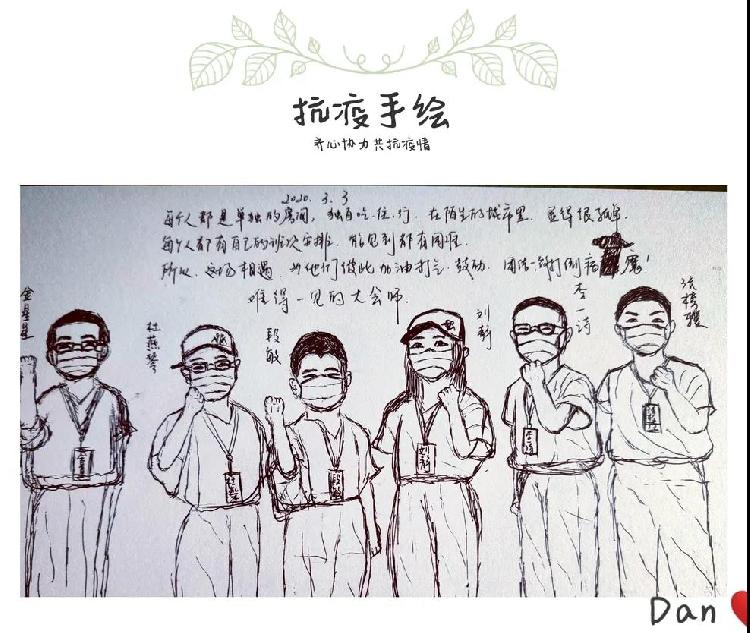 抗疫手绘
齐心协力共抗疫情
2020.3.3
每个人都是单独的房间,独自吃.住.行.在陌生的城市里.显得很孤单.
每个人都有自己的班次安排.能见到都有困难
所以,这场相遇.为他们彼此加油打气.鼓励.团结一致打倒病魔!
难得一见的大会师.
金星星
杜燕琴
段敏
刘蔚
李一诗
Dan